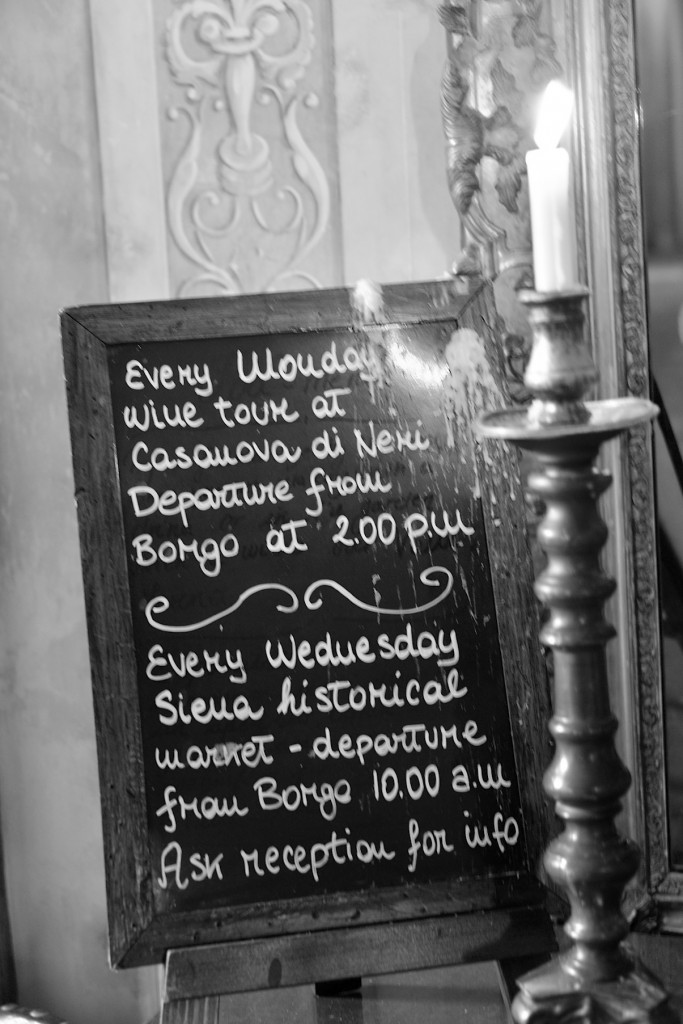 Every Monday
wine tour at
Casanova di Neri
Departure from
Borgo at 2.00 p.m
Every Wednesday
Siena historical
market - departure
from Borgo 10.00 a.m
Ask reception for info